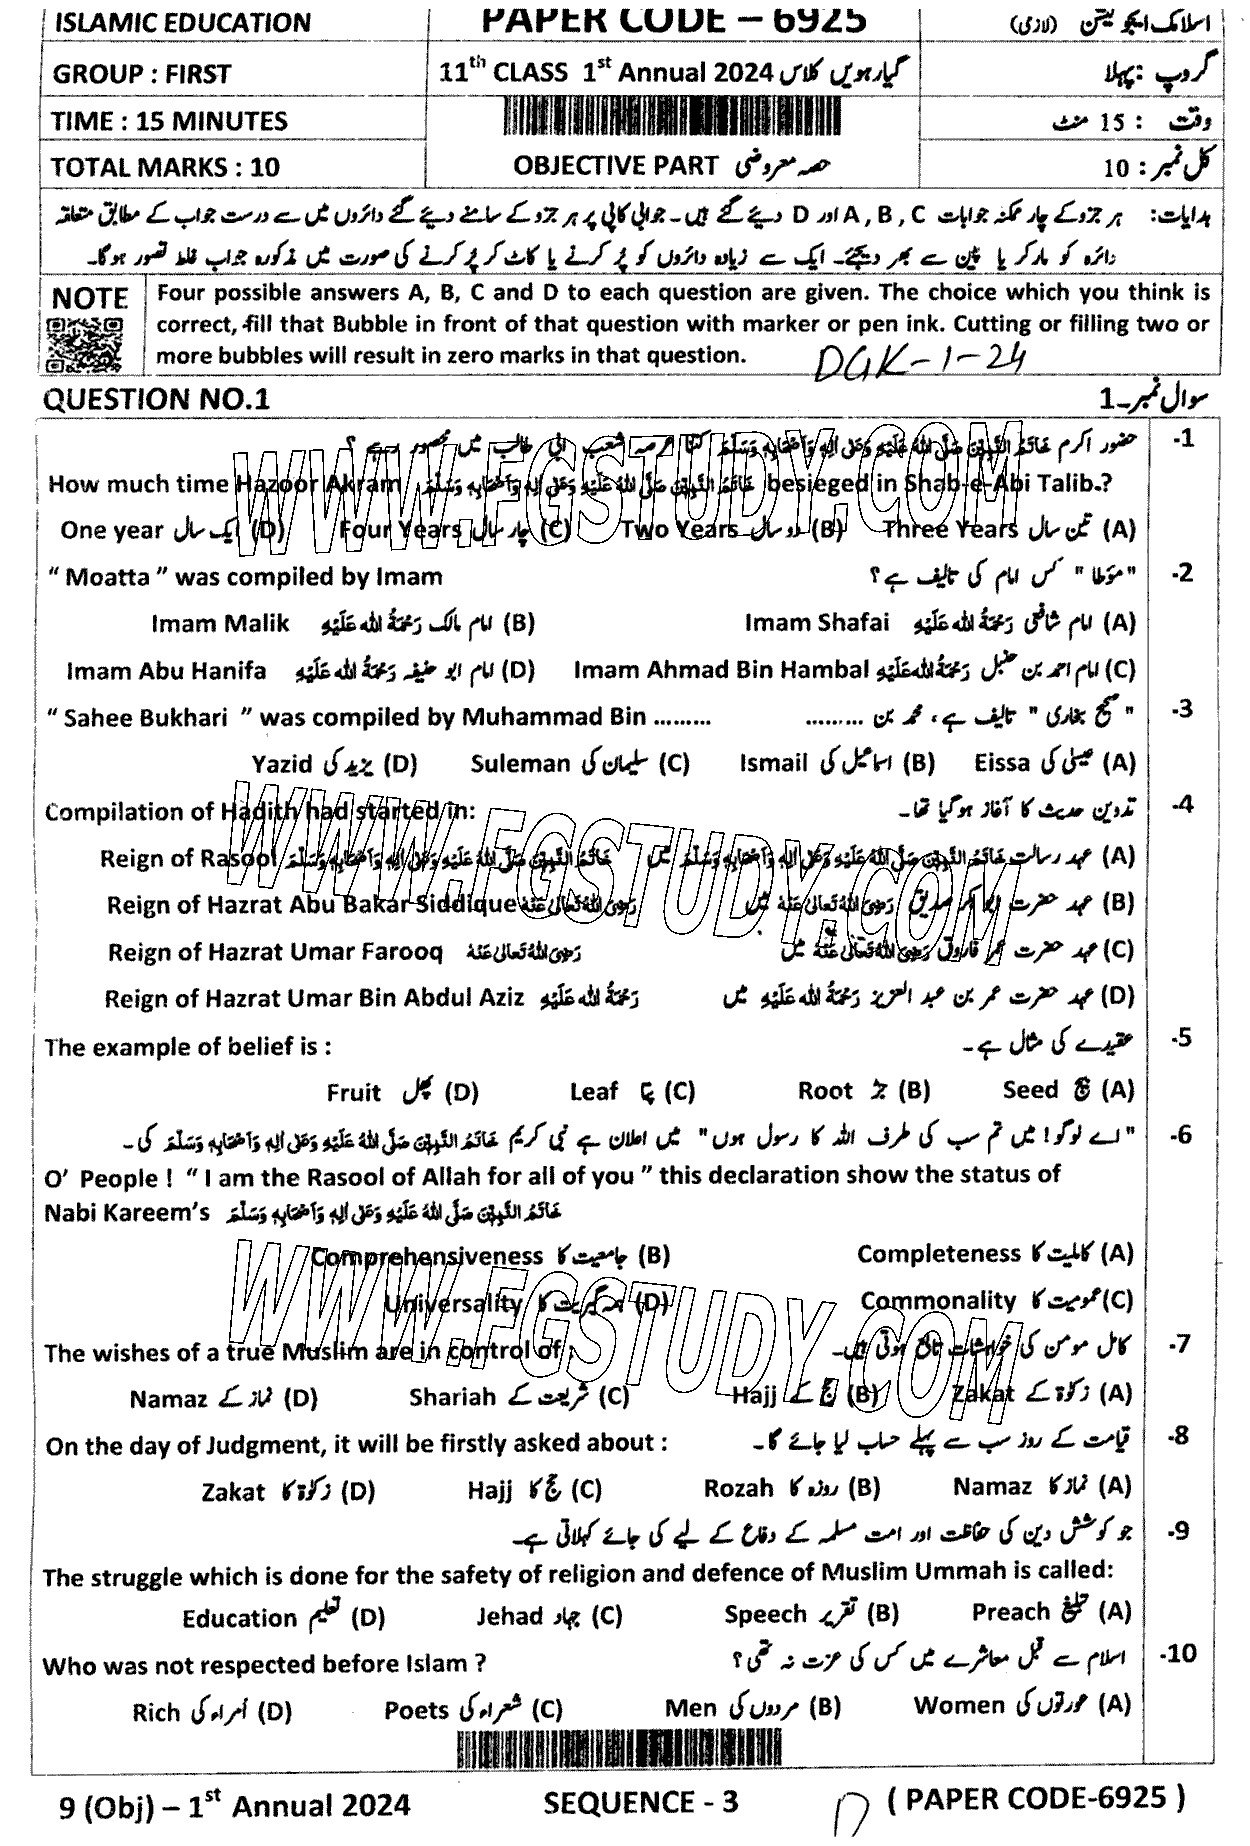 ISLAMIC EDUCATION PAPER CODE – 6925 اسلامک ایجوکیشن (لازمی)
GROUP : FIRST 11th CLASS 1st Annual 2024 گیارہویں کلاس گروپ : پہلا
TIME : 15 MINUTES وقت : 15 منٹ
TOTAL MARKS : 10 OBJECTIVE PART حصہ معروضی کل نمبر : 10
ہدایات: ہر جزو کے چار ممکنہ جوابات A , B , C اور D دیئے گئے ہیں۔ جوابی کاپی پر ہر جزو کے سامنے دیئے گئے دائروں میں سے درست جواب کے مطابق متعلقہ
دائرہ کو مارکر یا پین سے بھر دیجئے۔ ایک سے زیادہ دائروں کو پُر کرنے یا کاٹ کر پُر کرنے کی صورت میں مذکورہ جواب غلط تصور ہوگا۔
NOTE Four possible answers A, B, C and D to each question are given. The choice which you think is
correct, fill that Bubble in front of that question with marker or pen ink. Cutting or filling two or
more bubbles will result in zero marks in that question. DGK-1-24
QUESTION NO.1 سوال نمبر۔1
-1 حضور اکرم خَاتَمُ النَّبِيّٖنَ صَلَّى اللهُ عَلَيْهِ وَعَلٰى اٰلِهٖ وَاَصْحَابِهٖ وَسَلَّمَ کتنا عرصہ شعب ابی طالب میں محصور رہے ؟
How much time Hazoor Akram خَاتَمُ النَّبِيّٖنَ صَلَّى اللهُ عَلَيْهِ وَعَلٰى اٰلِهٖ وَاَصْحَابِهٖ وَسَلَّمَ besieged in Shab-e-Abi Talib.?
One year ایک سال (D) Four Years چار سال (C) Two Years دو سال (B) Three Years تین سال (A)
“ Moatta ” was compiled by Imam "مؤطا" کس امام کی تالیف ہے؟ -2
Imam Malik امام مالک رَحْمَةُ اللهِ عَلَيْهِ (B) Imam Shafai امام شافعی رَحْمَةُ اللهِ عَلَيْهِ (A)
Imam Abu Hanifa امام ابو حنیفہ رَحْمَةُ اللهِ عَلَيْهِ (D) Imam Ahmad Bin Hambal امام احمد بن حنبل رَحْمَةُ اللهِ عَلَيْهِ (C)
“ Sahee Bukhari ” was compiled by Muhammad Bin ......... "صحیح بخاری" تالیف ہے، محمد بن ......... -3
Yazid یزید کی (D) Suleman سلیمان کی (C) Ismail اسماعیل کی (B) Eissa عیسیٰ کی (A)
Compilation of Hadith had started in: تدوین حدیث کا آغاز ہوگیا تھا۔ -4
Reign of Rasool خَاتَمُ النَّبِيّٖنَ صَلَّى اللهُ عَلَيْهِ وَعَلٰى اٰلِهٖ وَاَصْحَابِهٖ وَسَلَّمَ عہد رسالت خَاتَمُ النَّبِيّٖنَ صَلَّى اللهُ عَلَيْهِ وَعَلٰى اٰلِهٖ وَاَصْحَابِهٖ وَسَلَّمَ میں (A)
Reign of Hazrat Abu Bakar Siddique رَضِىَ اللهُ تَعَالٰى عَنْهُ عہد حضرت ابو بکر صدیق رَضِىَ اللهُ تَعَالٰى عَنْهُ میں (B)
Reign of Hazrat Umar Farooq رَضِىَ اللهُ تَعَالٰى عَنْهُ عہد حضرت عمر فاروق رَضِىَ اللهُ تَعَالٰى عَنْهُ میں (C)
Reign of Hazrat Umar Bin Abdul Aziz رَحْمَةُ اللهِ عَلَيْهِ عہد حضرت عمر بن عبد العزیز رَحْمَةُ اللهِ عَلَيْهِ میں (D)
The example of belief is : عقیدے کی مثال ہے۔ -5
Fruit پھل (D) Leaf پتا (C) Root جڑ (B) Seed بیج (A)
-6 "اے لوگو! میں تم سب کی طرف اللہ کا رسول ہوں" میں اعلان ہے نبی کریم خَاتَمُ النَّبِيّٖنَ صَلَّى اللهُ عَلَيْهِ وَعَلٰى اٰلِهٖ وَاَصْحَابِهٖ وَسَلَّمَ کی۔
O’ People ! “ I am the Rasool of Allah for all of you ” this declaration show the status of
Nabi Kareem’s خَاتَمُ النَّبِيّٖنَ صَلَّى اللهُ عَلَيْهِ وَعَلٰى اٰلِهٖ وَاَصْحَابِهٖ وَسَلَّمَ
Comprehensiveness جامعیت کا (B) Completeness کاملیت کا (A)
Universality ہمہ گیریت کا (D) Commonality عمومیت کا (C)
The wishes of a true Muslim are in control of : کامل مومن کی خواہشات تابع ہوتی ہیں۔ -7
Namaz نماز کے (D) Shariah شریعت کے (C) Hajj حج کے (B) Zakat زکوٰۃ کے (A)
On the day of Judgment, it will be firstly asked about : قیامت کے روز سب سے پہلے حساب لیا جائے گا۔ -8
Zakat زکوٰۃ کا (D) Hajj حج کا (C) Rozah روزہ کا (B) Namaz نماز کا (A)
-9 جو کوشش دین کی حفاظت اور امت مسلمہ کے دفاع کے لیے کی جائے کہلاتی ہے۔
The struggle which is done for the safety of religion and defence of Muslim Ummah is called:
Education تعلیم (D) Jehad جہاد (C) Speech تقریر (B) Preach تبلیغ (A)
Who was not respected before Islam ? اسلام سے قبل معاشرے میں کس کی عزت نہ تھی؟ -10
Rich اُمراء کی (D) Poets شعراء کی (C) Men مردوں کی (B) Women عورتوں کی (A)
9 (Obj) – 1st Annual 2024 SEQUENCE - 3 ( PAPER CODE-6925 )
WWW.FGSTUDY.COM
WWW.FGSTUDY.COM
WWW.FGSTUDY.COM